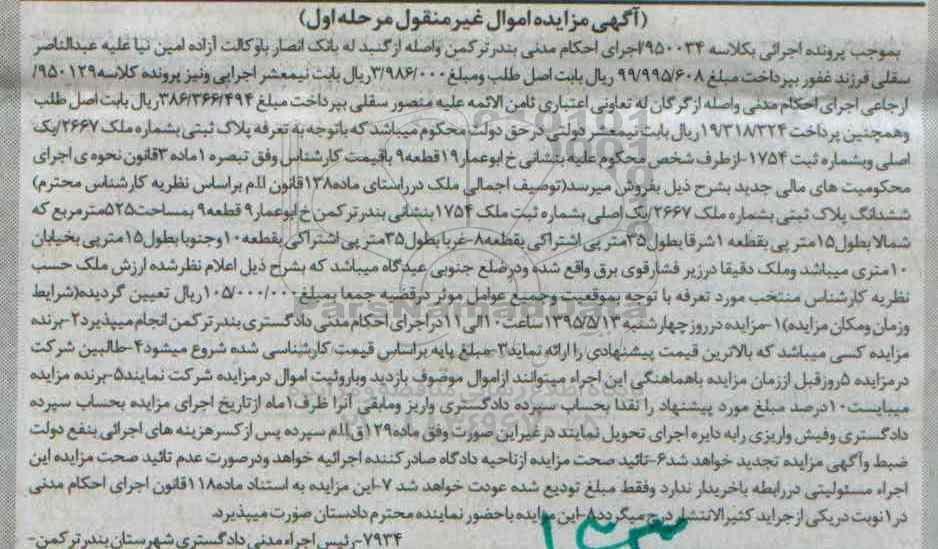 (آگهی مزایده اموال غیر منقول مرحله اول)
بموجب پرونده اجرائی بکلاسه ۹۵۰۰۳۴/اجرای احکام مدنی بندرترکمن واصله از گنبد له بانک انصار باوکالت آزاده امین نیا علیه عبدالناصر
سقلی فرزند غفور بپرداخت مبلغ ۹۹/۹۹۵/۶۰۸ ریال بابت اصل طلب ومبلغ ۳/۹۸۶/۰۰۰ریال بابت نیمعشر اجرایی ونیز پرونده کلاسه ۹۵۰۱۲۹/
ارجاعی اجرای احکام مدنی واصله از گرگان له تعاونی اعتباری ثامن الائمه علیه منصور سقلی بپرداخت مبلغ ۳۸۶/۳۶۶/۴۹۴ریال بابت اصل طلب
وهمچنین پرداخت ۱۹/۳۱۸/۳۲۴ریال بابت نیمعشر دولتی درحق دولت محکوم میباشد که باتوجه به تعرفه پلاک ثبتی بشماره ملک ۲۶۶۷/یک
اصلی وبشماره ثبت ۱۷۵۴-ازطرف شخص محکوم علیه بنشانی خ ابوعمار۱۹قطعه۹ باقیمت کارشناس وفق تبصره ۱ماده ۳قانون نحوه ی اجرای
محکومیت های مالی جدید بشرح ذیل بفروش میرسد(توصیف اجمالی ملک درراستای ماده۱۳۸قانون ا.ا.م براساس نظریه کارشناس محترم)
ششدانگ پلاک ثبتی بشماره ملک ۲۶۶۷/یک اصلی بشماره ثبت ملک ۱۷۵۴بنشانی بندرترکمن خ ابوعمار۹ قطعه۹ بمساحت۵۲۵مترمربع که
شمالا بطول۱۵متر پی بقطعه ۱شرقا بطول۳۵متر پی اشتراکی بقطعه۸-غربا بطول۳۵متر پی اشتراکی بقطعه۱۰وجنوبا بطول۱۵متر پی بخیابان
۱۰متری میباشد وملک دقیقا درزیر فشارقوی برق واقع شده ودرضلع جنوبی عیدگاه میباشد که بشرح ذیل اعلام نظرشده ارزش ملک حسب
نظریه کارشناس منتخب مورد تعرفه با توجه بموقعیت وجمیع عوامل موثر درقضیه جمعا بمبلغ ۱۰۵/۰۰۰/۰۰۰ریال تعیین گردیده(شرایط
وزمان ومکان مزایده)۱-مزایده درروز چهارشنبه ۱۳۹۵/۵/۱۳ساعت ۱۰الی۱۱دراجرای احکام مدنی دادگستری بندرترکمن انجام میپذیرد۲-برنده
مزایده کسی میباشد که بالاترین قیمت پیشنهادی را ارائه نماید۳-مبلغ پایه براساس قیمت کارشناسی شده شروع میشود۴-طالبین شرکت
درمزایده ۵روزقبل اززمان مزایده باهماهنگی این اجراء میتوانند ازاموال موضوف بازدید وباروئیت اموال درمزایده شرکت نمایند۵-برنده مزایده
میبایست۱۰درصد مبلغ مورد پیشنهاد را نقدا بحساب سپرده دادگستری واریز ومابقی آنرا ظرف۱ماه ازتاریخ اجرای مزایده بحساب سپرده
دادگستری وفیش واریزی رابه دایره اجرای تحویل نمایند درغیراین صورت وفق ماده۱۲۹ق.ا.ا.م سپرده پس از کسرهزینه های اجرائی بنفع دولت
ضبط وآگهی مزایده تجدید خواهد شد۶-تائید صحت مزایده ازناحیه دادگاه صادرکننده اجرائیه خواهد ودرصورت عدم تائید صحت مزایده این
اجراء مسئولیتی دررابطه باخریدار ندارد وفقط مبلغ تودیع شده عودت خواهد شد ۷-این مزایده به استناد ماده۱۱۸قانون اجرای احکام مدنی
در۱نوبت دریکی ازجراید کثیرالانتشار درج میگردد۸-این مزایده باحضور نماینده محترم دادستان صورت میپذیرد.
۷۹۳۴-رئیس اجراء مدنی دادگستری شهرستان بندرترکمن-
ParsNamadData